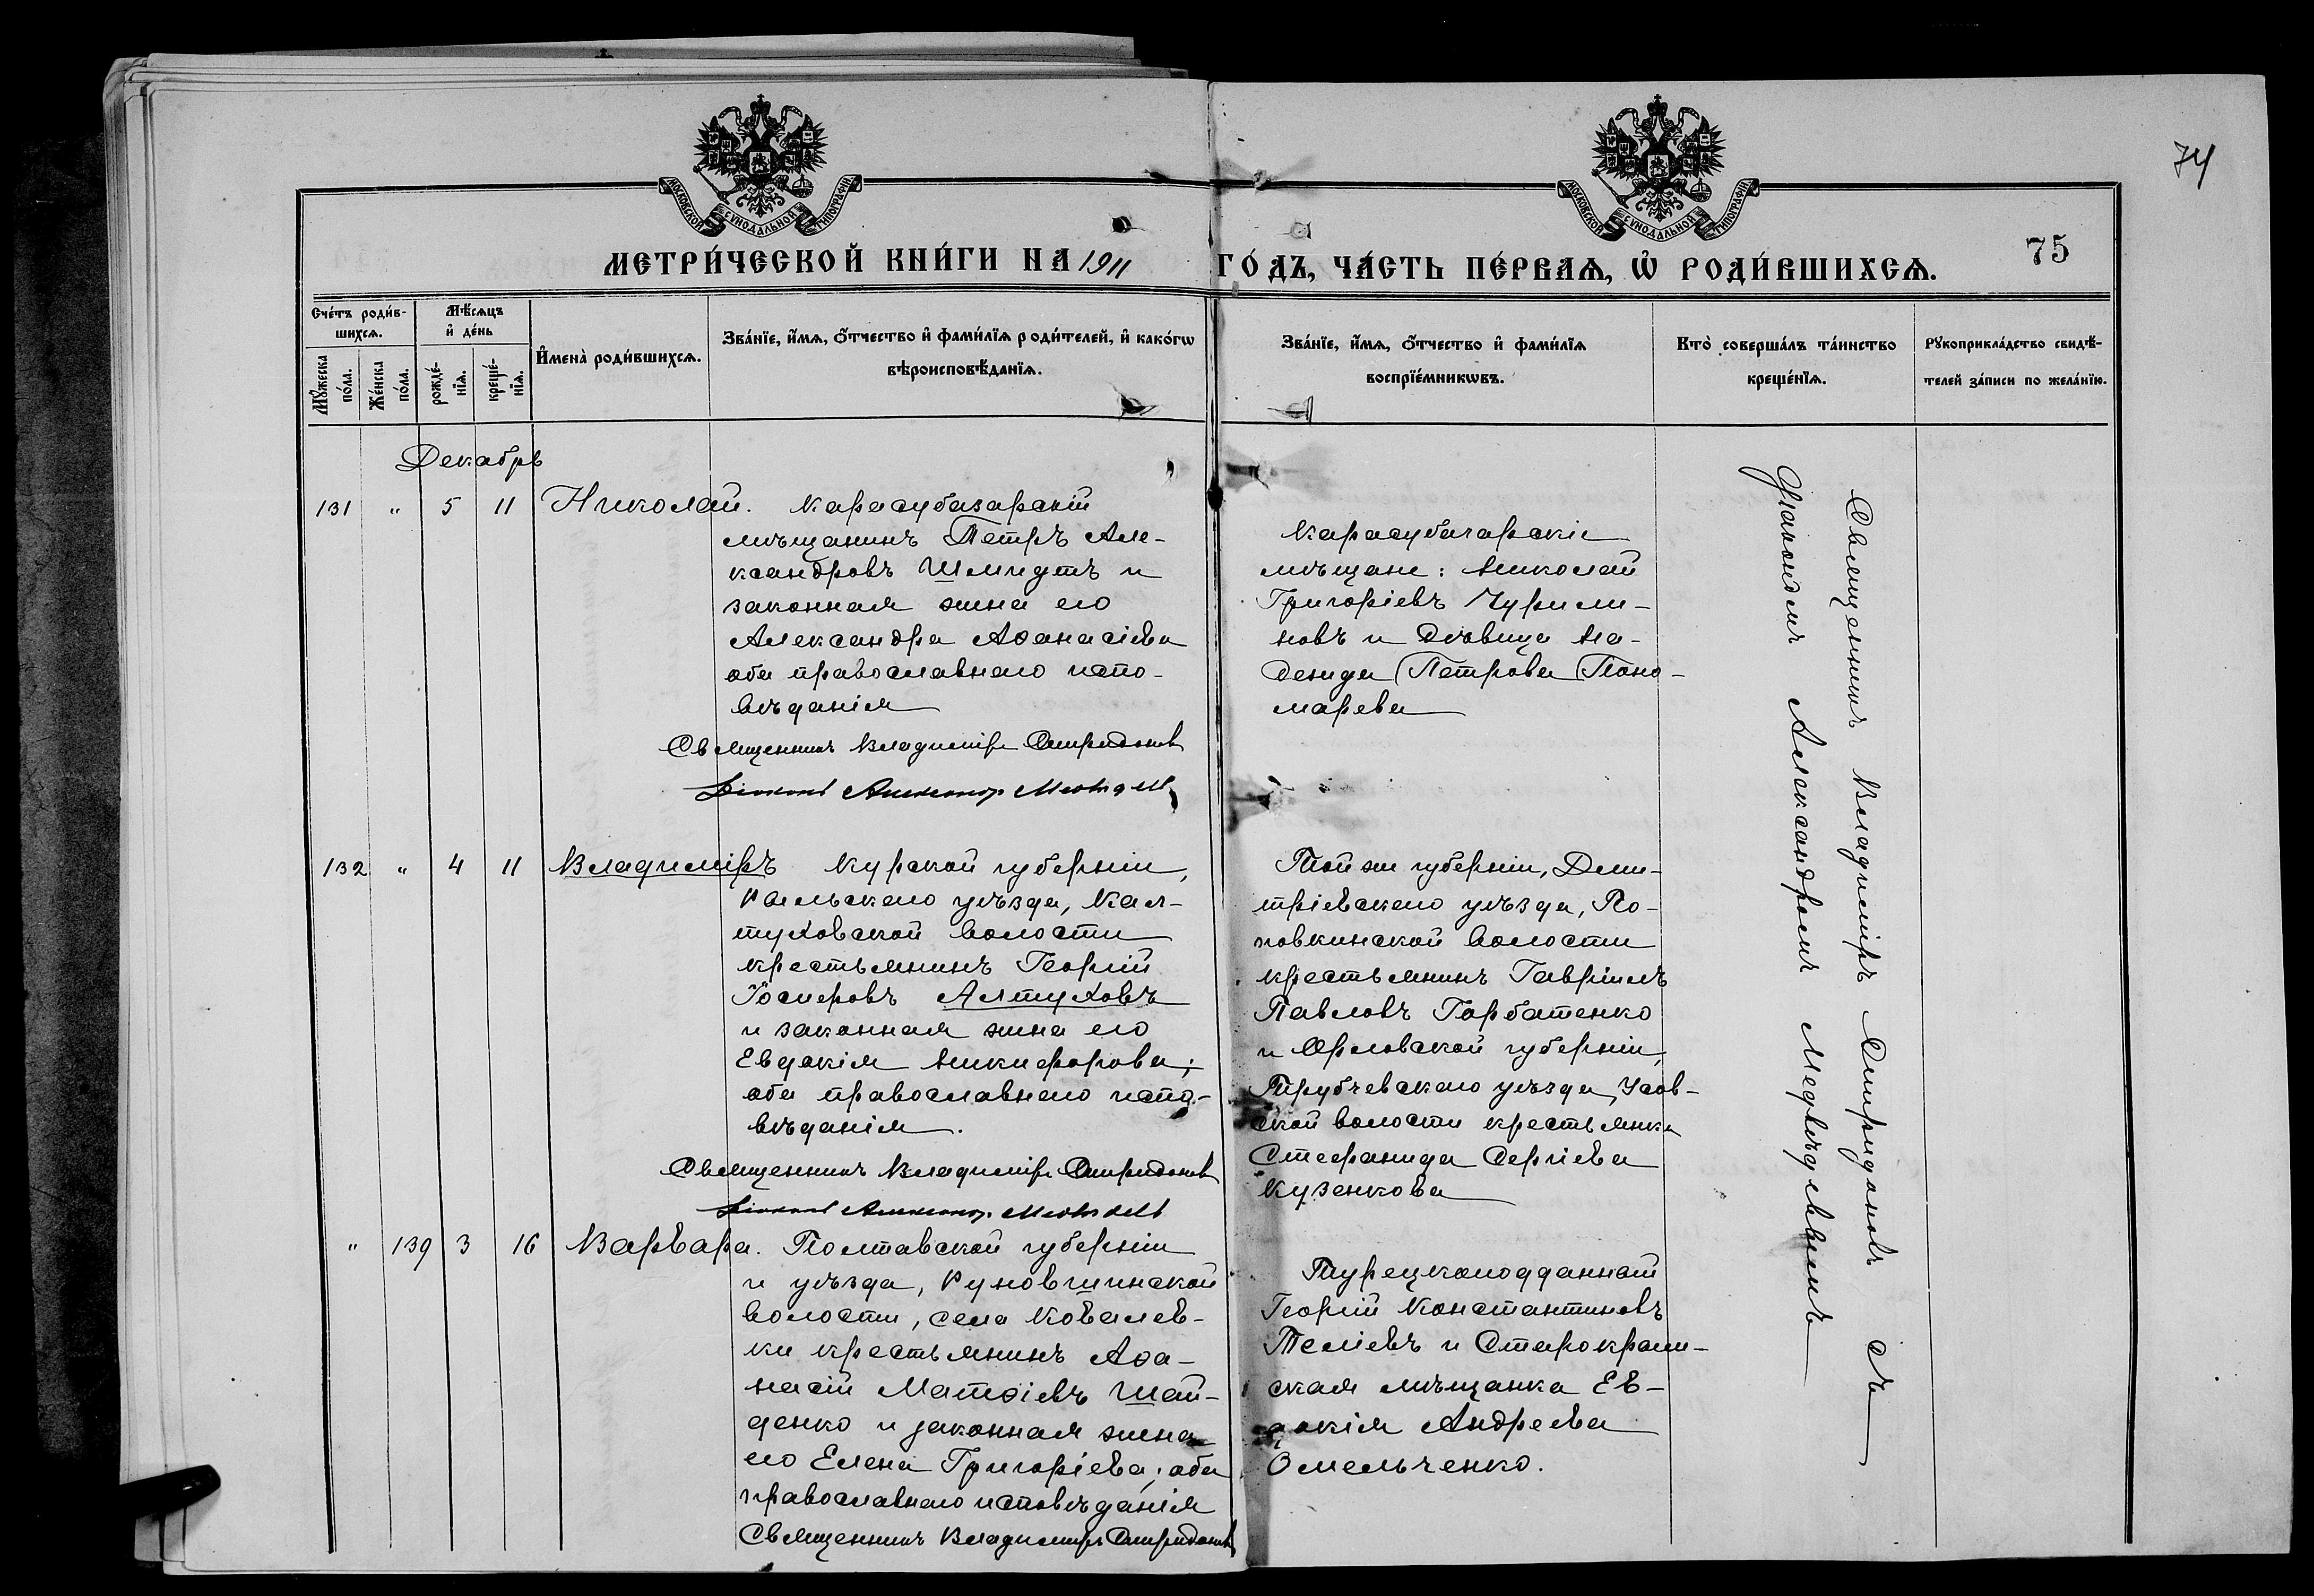 74
МОСКОВСКОЙ СѴНОДАЛЬНОЙ ТИПОГРАФІИ
МОСКОВСКОЙ СѴНОДАЛЬНОЙ ТИПОГРАФІИ
МЕТРИ́ЧЕСКОЙ КНИ́ГИ НА 1911 ГО́ДЪ, ЧА́СТЬ ПЕ́РВАѦ, Ѡ҆ РОДИ́ВШИХСѦ.
75
Сче́тъ роди́в-
шихсѧ.
Мꙋ́жеска
по́ла.
Же́нска
по́ла.
Мѣ́сѧцъ
и҆ де́нь
рожде́-
нїѧ.
креще́-
нїѧ.
И҆мена̀ роди́вшихсѧ.
Зва́нїе, и҆́мѧ, ѻ҆́тчество и҆ фами́лїѧ роди́телей, и҆ како́гѡ
вѣроисповѣ́данїѧ.
Зва́нїе, и҆́мѧ, ѻ҆́тчество и҆ фами́лїѧ
воспрїе́мникѡвъ.
Кто̀ соверша́лъ та́инство
креще́нїѧ.
Рꙋкоприкла́дство свидѣ́-
телей за́писи по жела́нїю.
Декабрь
131 " 5 11 Николай. Карасубазарскій
мѣщанинъ Петръ Але-
ксандровъ Шмидтъ и
законная жена его
Александра Аѳанасіева
оба православнаго испо-
вѣданія
Священникъ Владиміръ Спиридоновъ
Карасубазарскіе
мѣщане: Николай
Григоріевъ Чурили-
новъ и дѣвица На-
дежда Петрова Поно-
марева
132 " 4 11 Владиміръ Курской губерніи,
Рыльскаго уѣзда, Кал-
туховской волости
крестьянинъ Георгій
Іосифовъ Алтуховъ
и законная жена его
Евдокія Никифорова;
оба православнаго испо-
вѣданія.
Священникъ Владиміръ Спиридоновъ
Той же губерніи, Дми-
тріевскаго уѣзда, По-
повкинской волости
крестьянинъ Гавріилъ
Павловъ Горбатенко
и Орловской губерніи,
Трубчевскаго уѣзда, Усов-
ской волости крестьянка
Стефанида Сергіева
Кузенкова
" 139 3 16 Варвара. Полтавской губерніи
и уѣзда, Руновщинской
волости, села Ковалев-
ки крестьянинъ Аѳа-
насій Матѳіевъ Шай-
денко и законная жена
его Елена Григоріева; оба
православнаго исповѣданія
Священникъ Владиміръ Спиридоновъ
Турецкоподданный
Георгій Константиновъ
Теліевъ и Старокрым-
ская мѣщанка Ев-
докія Андреева
Омельченко.
Священникъ Владиміръ Спиридоновъ съ
діакономъ Александромъ Медвѣдевымъ